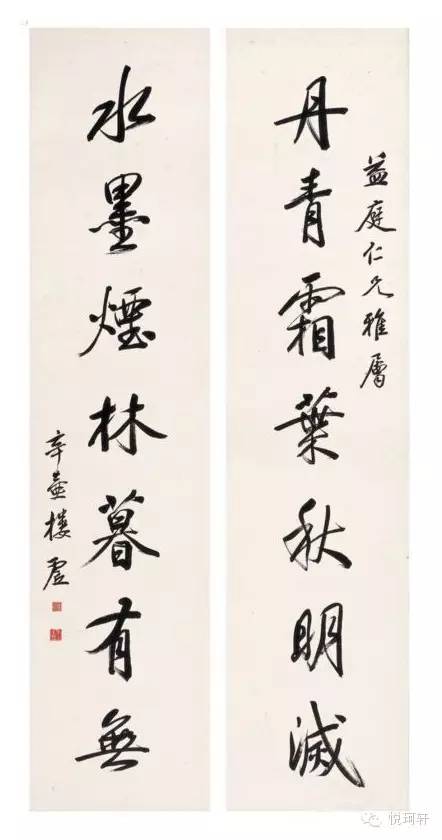 益庭仁兄雅屬
丹青霜葉秋明滅
水墨煙林暮有無
辛壺樓虛
悦珂轩